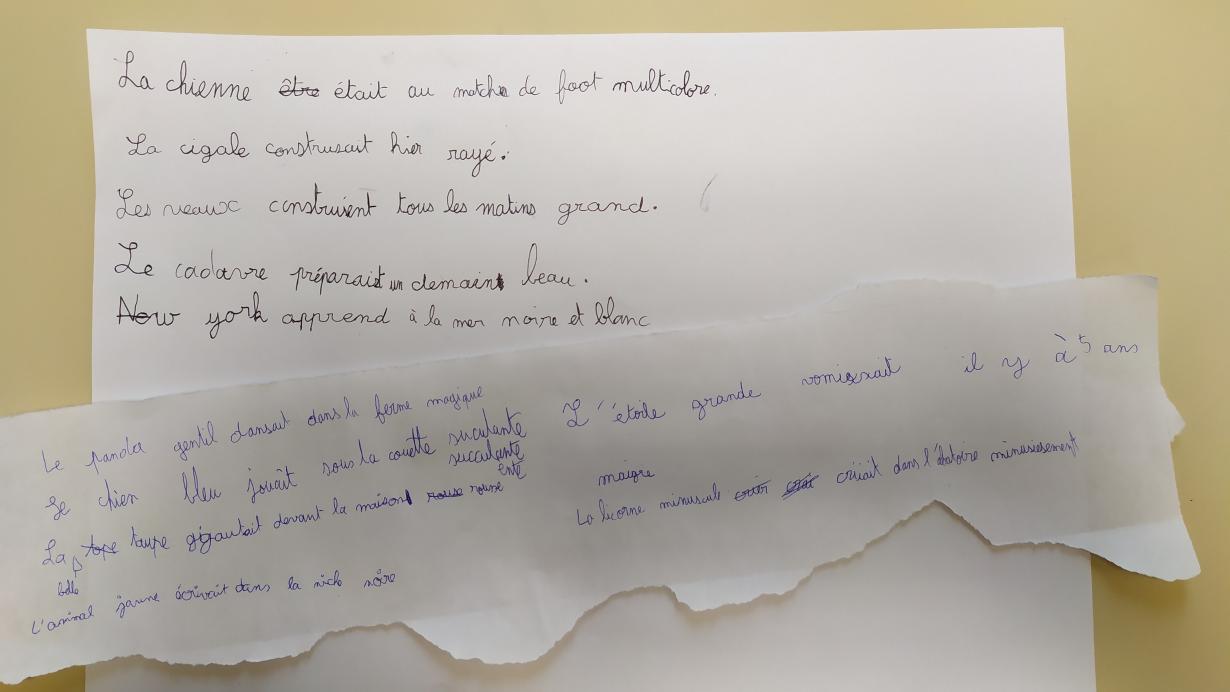 La chienne être était au match de foot multicolore.
La cigale construsait hier rayé.
Les veaux construient tous les matins grand.
Le cadavre préparait un demain beau.
New york apprend à la mer noire et blanc
Le panda gentil dansait dans la ferme magique
Le chien bleu jouait sous la couette succulante
succulante
ente
La tope taupe gigautait devant la maison rousse rousse
belle
L'animal jaune écrivait dans la nich noire
L'étoile grande vomissait il y à 5 ans
maigre
La licorne minuscule criait dans l'abatoire